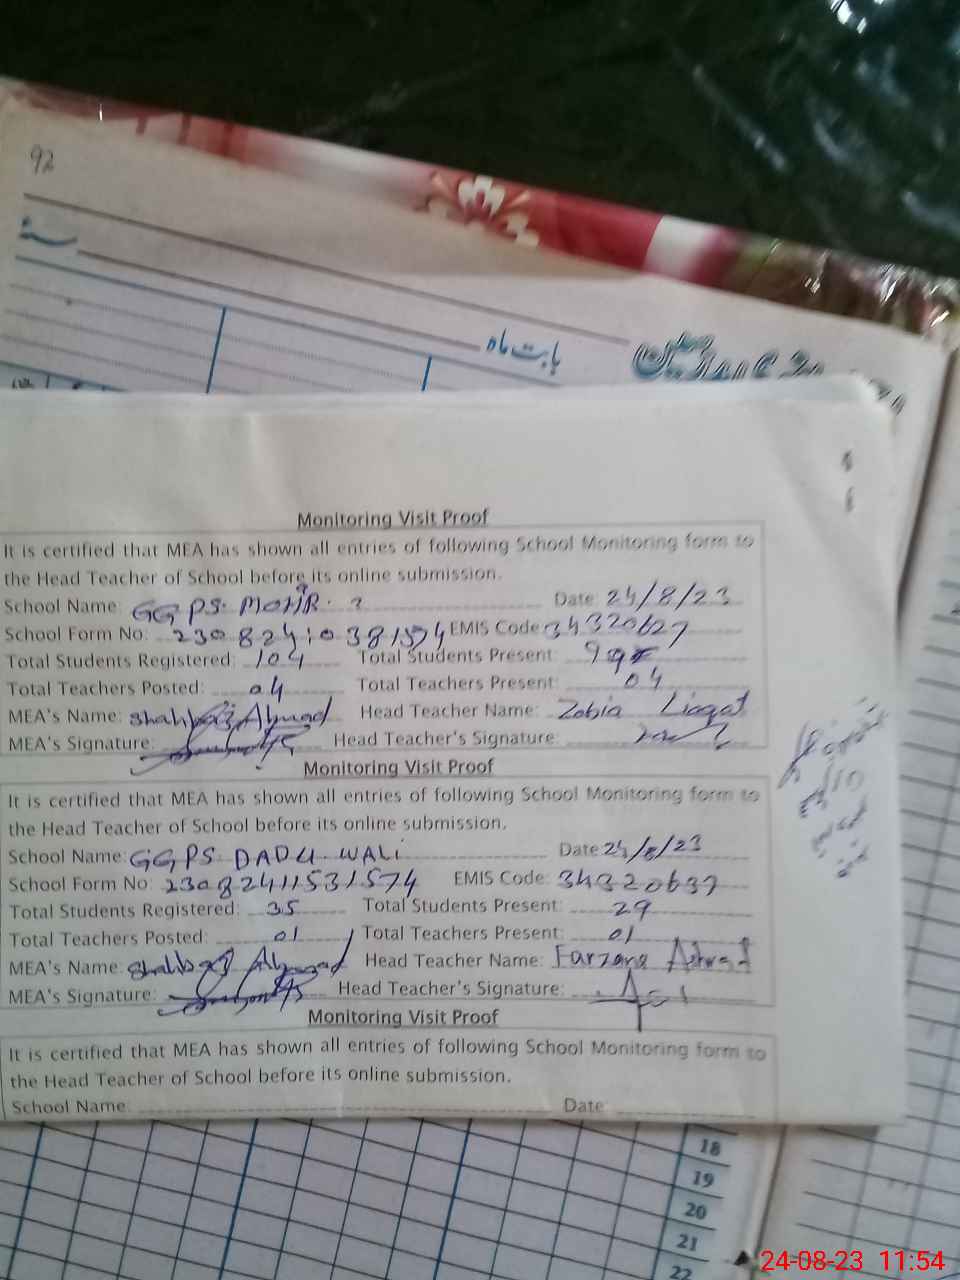 92
بابت ماہ
Monitoring Visit Proof
It is certified that MEA has shown all entries of following School Monitoring form to
the Head Teacher of School before its online submission.
School Name: GGPS. Date: 24/8/23
School Form No: EMIS Code: 34320627
Total Students Registered: 104 Total Students Present:
Total Teachers Posted: 04 Total Teachers Present: 04
MEA's Name: Shahbaz Ahmad Head Teacher Name: Zobia Liaqat
MEA's Signature: Head Teacher's Signature:
Monitoring Visit Proof
It is certified that MEA has shown all entries of following School Monitoring form to
the Head Teacher of School before its online submission.
School Name: GGPS DADU WALI Date 24/8/23
School Form No: 23082411531574 EMIS Code: 34320637
Total Students Registered: 35 Total Students Present: 29
Total Teachers Posted: 01 Total Teachers Present: 01
MEA's Name: Shahbaz Ahmad Head Teacher Name: Farzana
MEA's Signature: Head Teacher's Signature:
Monitoring Visit Proof
It is certified that MEA has shown all entries of following School Monitoring form to
the Head Teacher of School before its online submission.
School Name: Date:
18
19
20
21
22
24-08-23 11:54